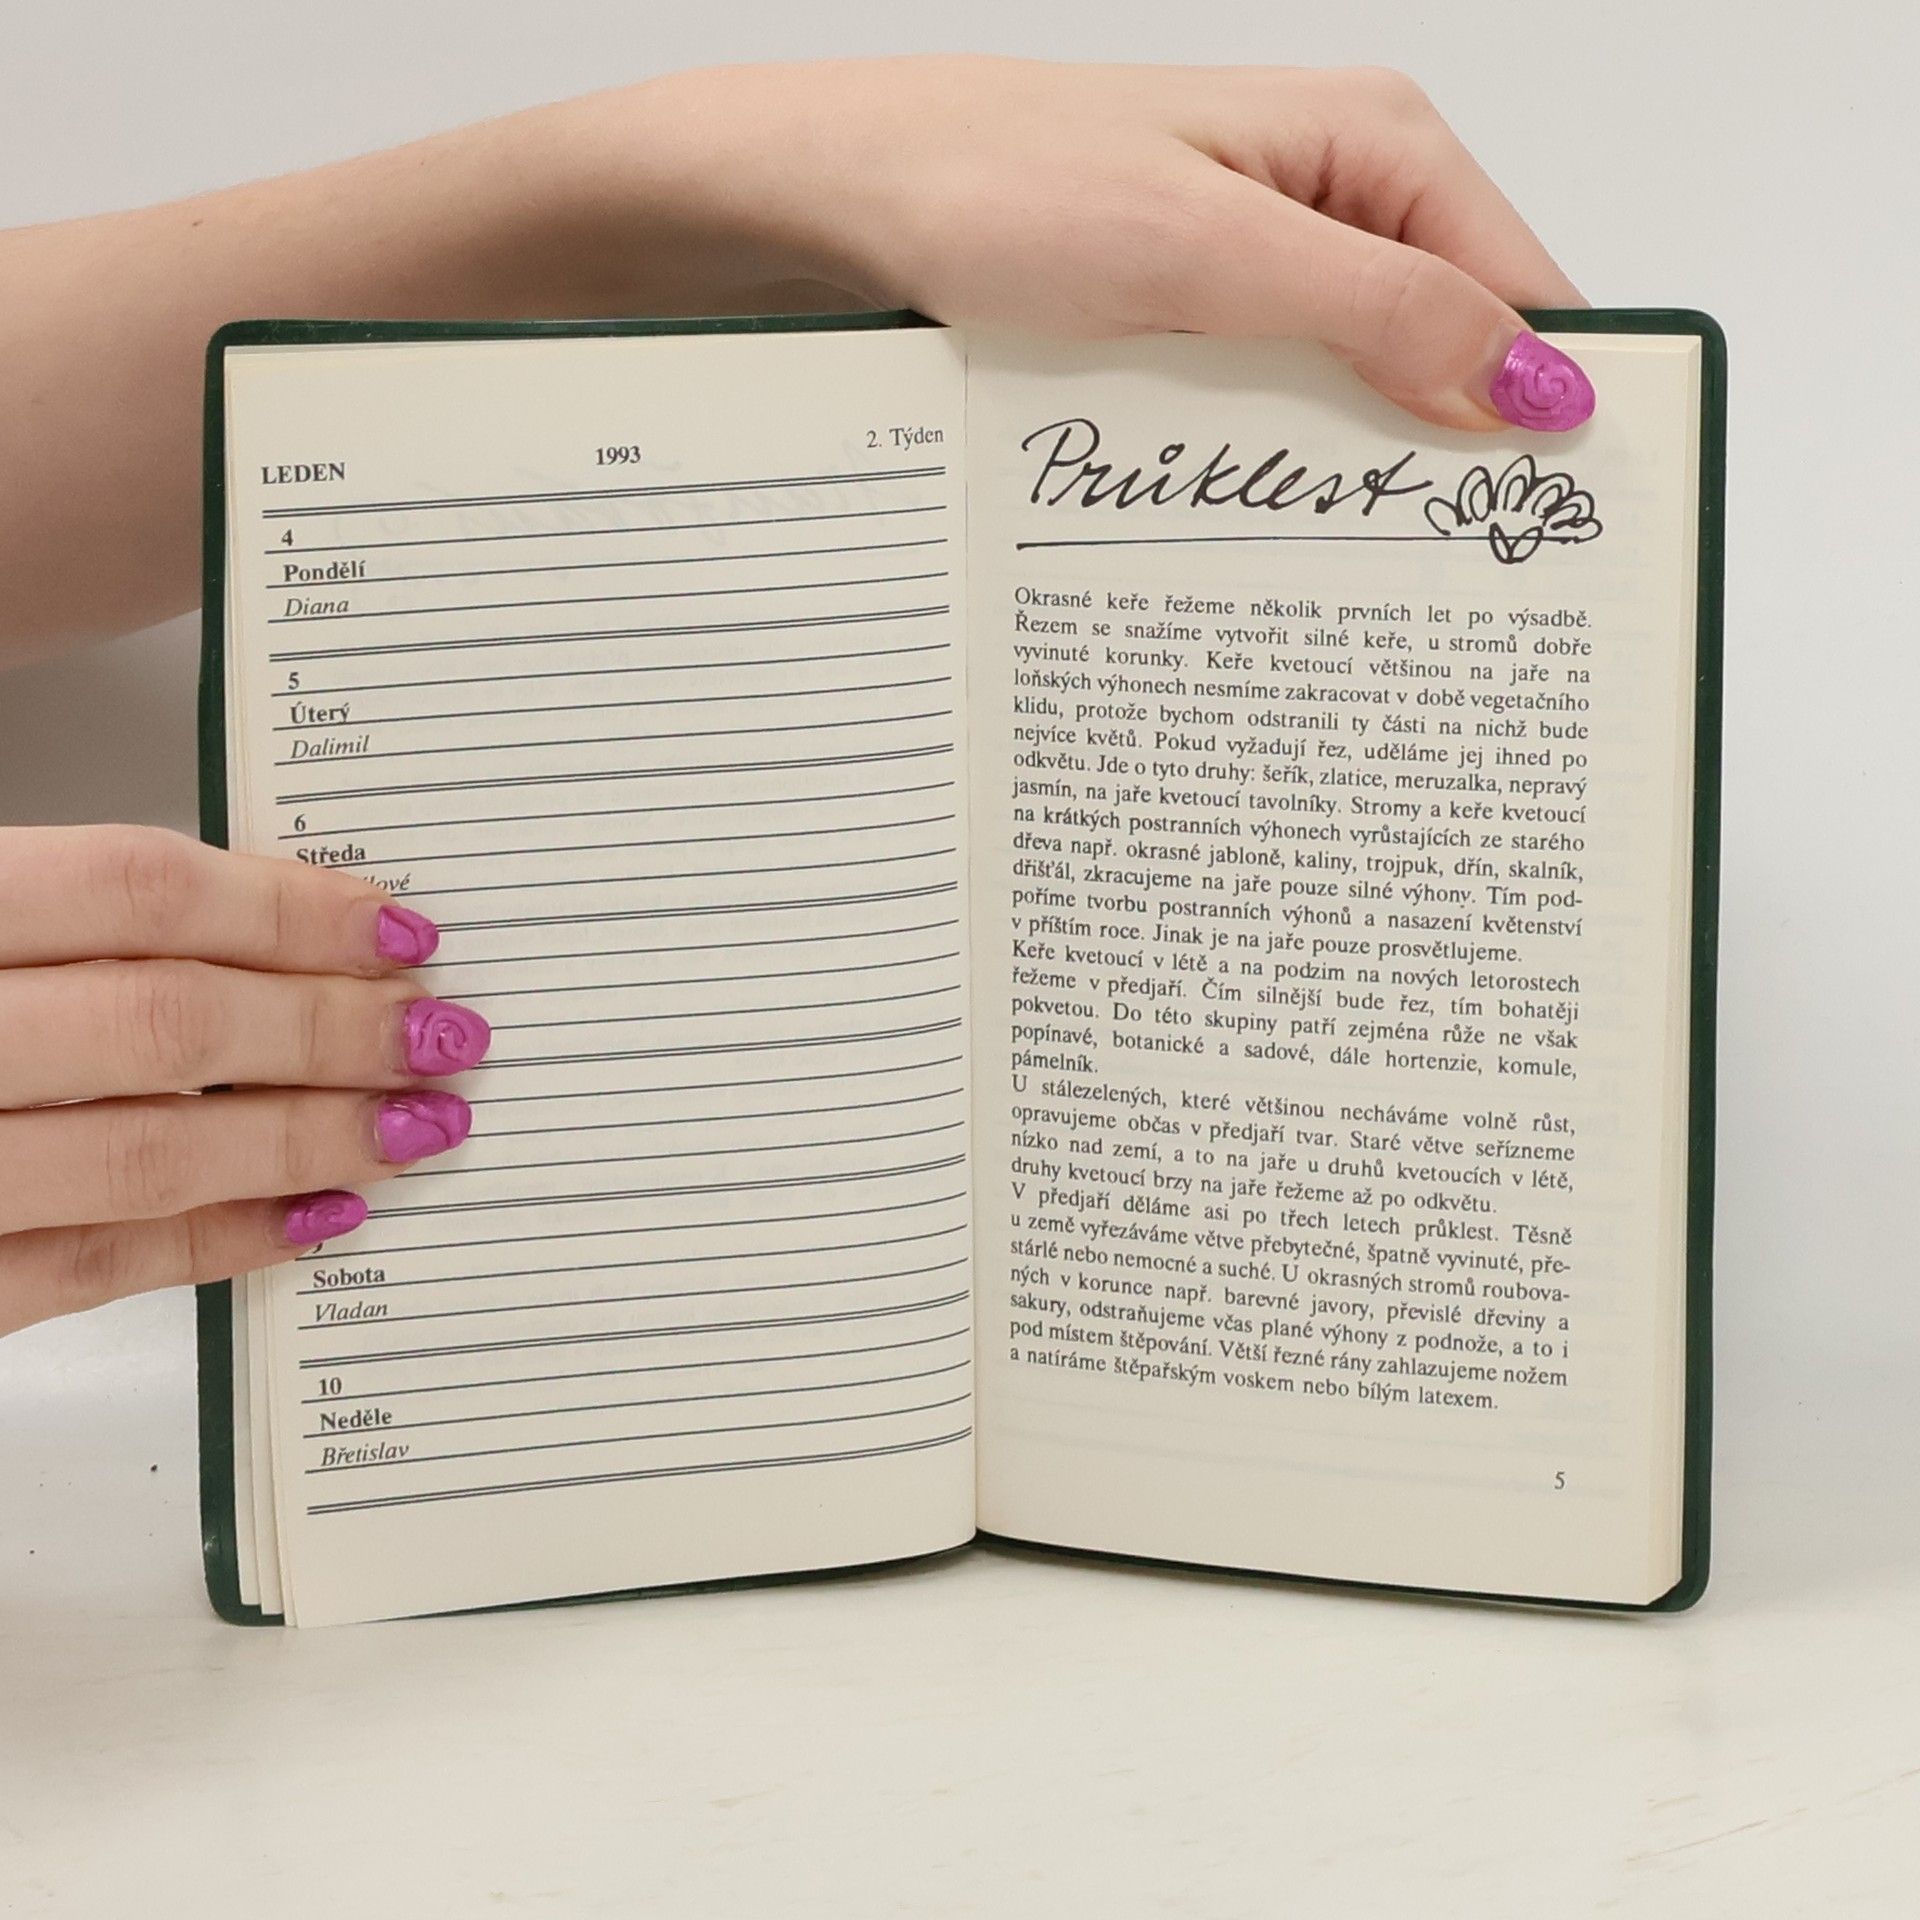 LEDEN 1993 2. Týden
4
Pondělí
Diana
5
Úterý
Dalimil
6
Středa
Sobota
Vladan
10
Neděle
Břetislav
Průklest
Okrasné keře řežeme několik prvních let po výsadbě.
Řezem se snažíme vytvořit silné keře, u stromů dobře
vyvinuté korunky. Keře kvetoucí většinou na jaře na
loňských výhonech nesmíme zakracovat v době vegetačního
klidu, protože bychom odstranili ty části na nichž bude
nejvíce květů. Pokud vyžadují řez, uděláme jej ihned po
odkvětu. Jde o tyto druhy: šeřík, zlatice, meruzalka, nepravý
jasmín, na jaře kvetoucí tavolníky. Stromy a keře kvetoucí
na krátkých postranních výhonech vyrůstajících ze starého
dřeva např. okrasné jabloně, kaliny, trojpuk, dřín, skalník,
dřišťál, zkracujeme na jaře pouze silné výhony. Tím pod-
poříme tvorbu postranních výhonů a nasazení květenství
v příštím roce. Jinak je na jaře pouze prosvětlujeme.
Keře kvetoucí v létě a na podzim na nových letorostech
řežeme v předjaří. Čím silnější bude řez, tím bohatěji
pokvetou. Do této skupiny patří zejména růže ne však
popínavé, botanické a sadové, dále hortenzie, komule,
pámelník.
U stálezelených, které většinou necháváme volně růst,
opravujeme občas v předjaří tvar. Staré větve seřízneme
nízko nad zemí, a to na jaře u druhů kvetoucích v létě,
druhy kvetoucí brzy na jaře řežeme až po odkvětu.
V předjaří děláme asi po třech letech průklest. Těsně
u země vyřezáváme větve přebytečné, špatně vyvinuté, pře-
stárlé nebo nemocné a suché. U okrasných stromů roubova-
ných v korunce např. barevné javory, převislé dřeviny a
sakury, odstraňujeme včas plané výhony z podnože, a to i
pod místem štěpování. Větší řezné rány zahlazujeme nožem
a natíráme štěpařským voskem nebo bílým latexem.
5